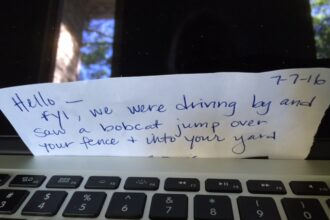 7-7-16
Hello —
fyi, we were driving by and
saw a bobcat jump over
your fence + into your yard